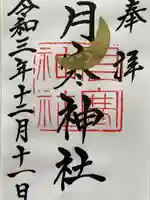 奉拝
月寒神社
令和三年十二月十一日